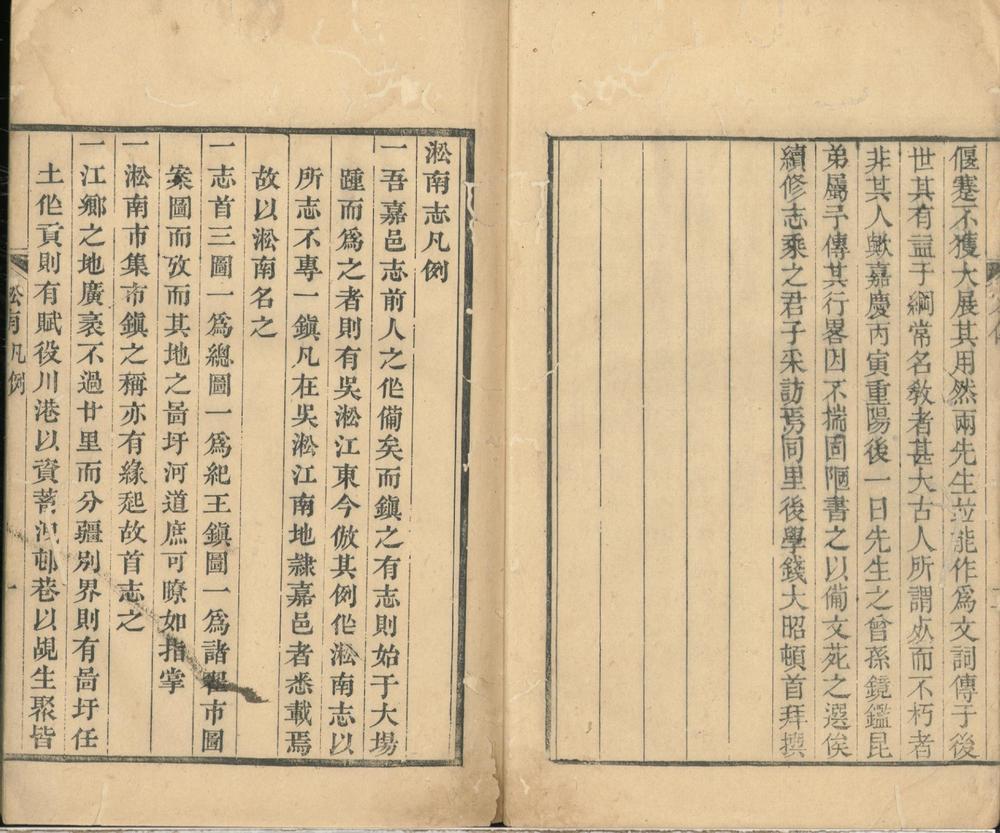 偃蹇不獲大展其用然兩先生竝能作爲文詞傳于後
世其有益于綱常名敎者甚大古人所謂歿而不朽者
非其人歟嘉慶丙寅重陽後一日先生之曾孫鏡鑑昆
弟屬予傳其行畧因不揣固陋書之以備文苑之選俟
續修志乘之君子采訪焉同里後學錢大昭頓首拜撰
淞南志凡例
一吾嘉邑志前人之作備矣而鎭之有志則始于大場
踵而爲之者則有吳淞江東今倣其例作淞南志以
所志不專一鎭凡在吳淞江南地隷嘉邑者悉載焉
故以淞南名之
一志首三圖一爲總圖一爲紀王鎭圖一爲諸翟市圖
案圖而攷而其地之啚圩河道庶可瞭如指掌
一淞南市集市鎭之稱亦有緣起故首志之
一江鄉之地廣袤不過廿里而分疆别界則有啚圩任
土作貢則有賦役川港以資蓄洩邨巷以覘生聚皆
淞南凡例
一